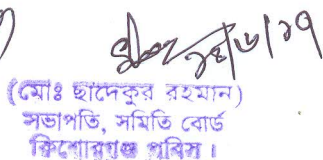 ১৪/৬/১৭
(মোঃ ছাদেকুর রহমান)
সভাপতি, সমিতি বোর্ড
কিশোরগঞ্জ পবিস।